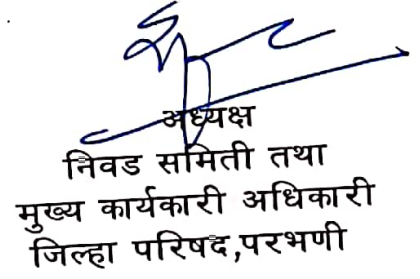 अध्यक्ष
निवड समिती तथा
मुख्य कार्यकारी अधिकारी
जिल्हा परिषद,परभणी